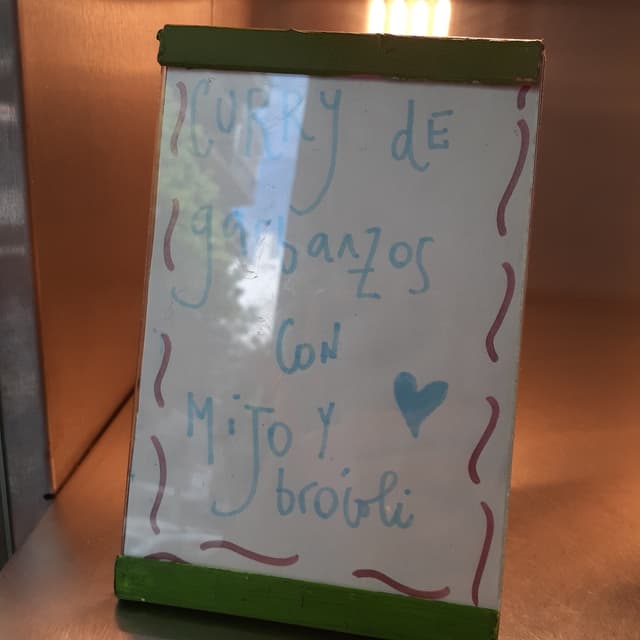 CURRY dE
garbanzos
CON
MiJo Y
brócoli